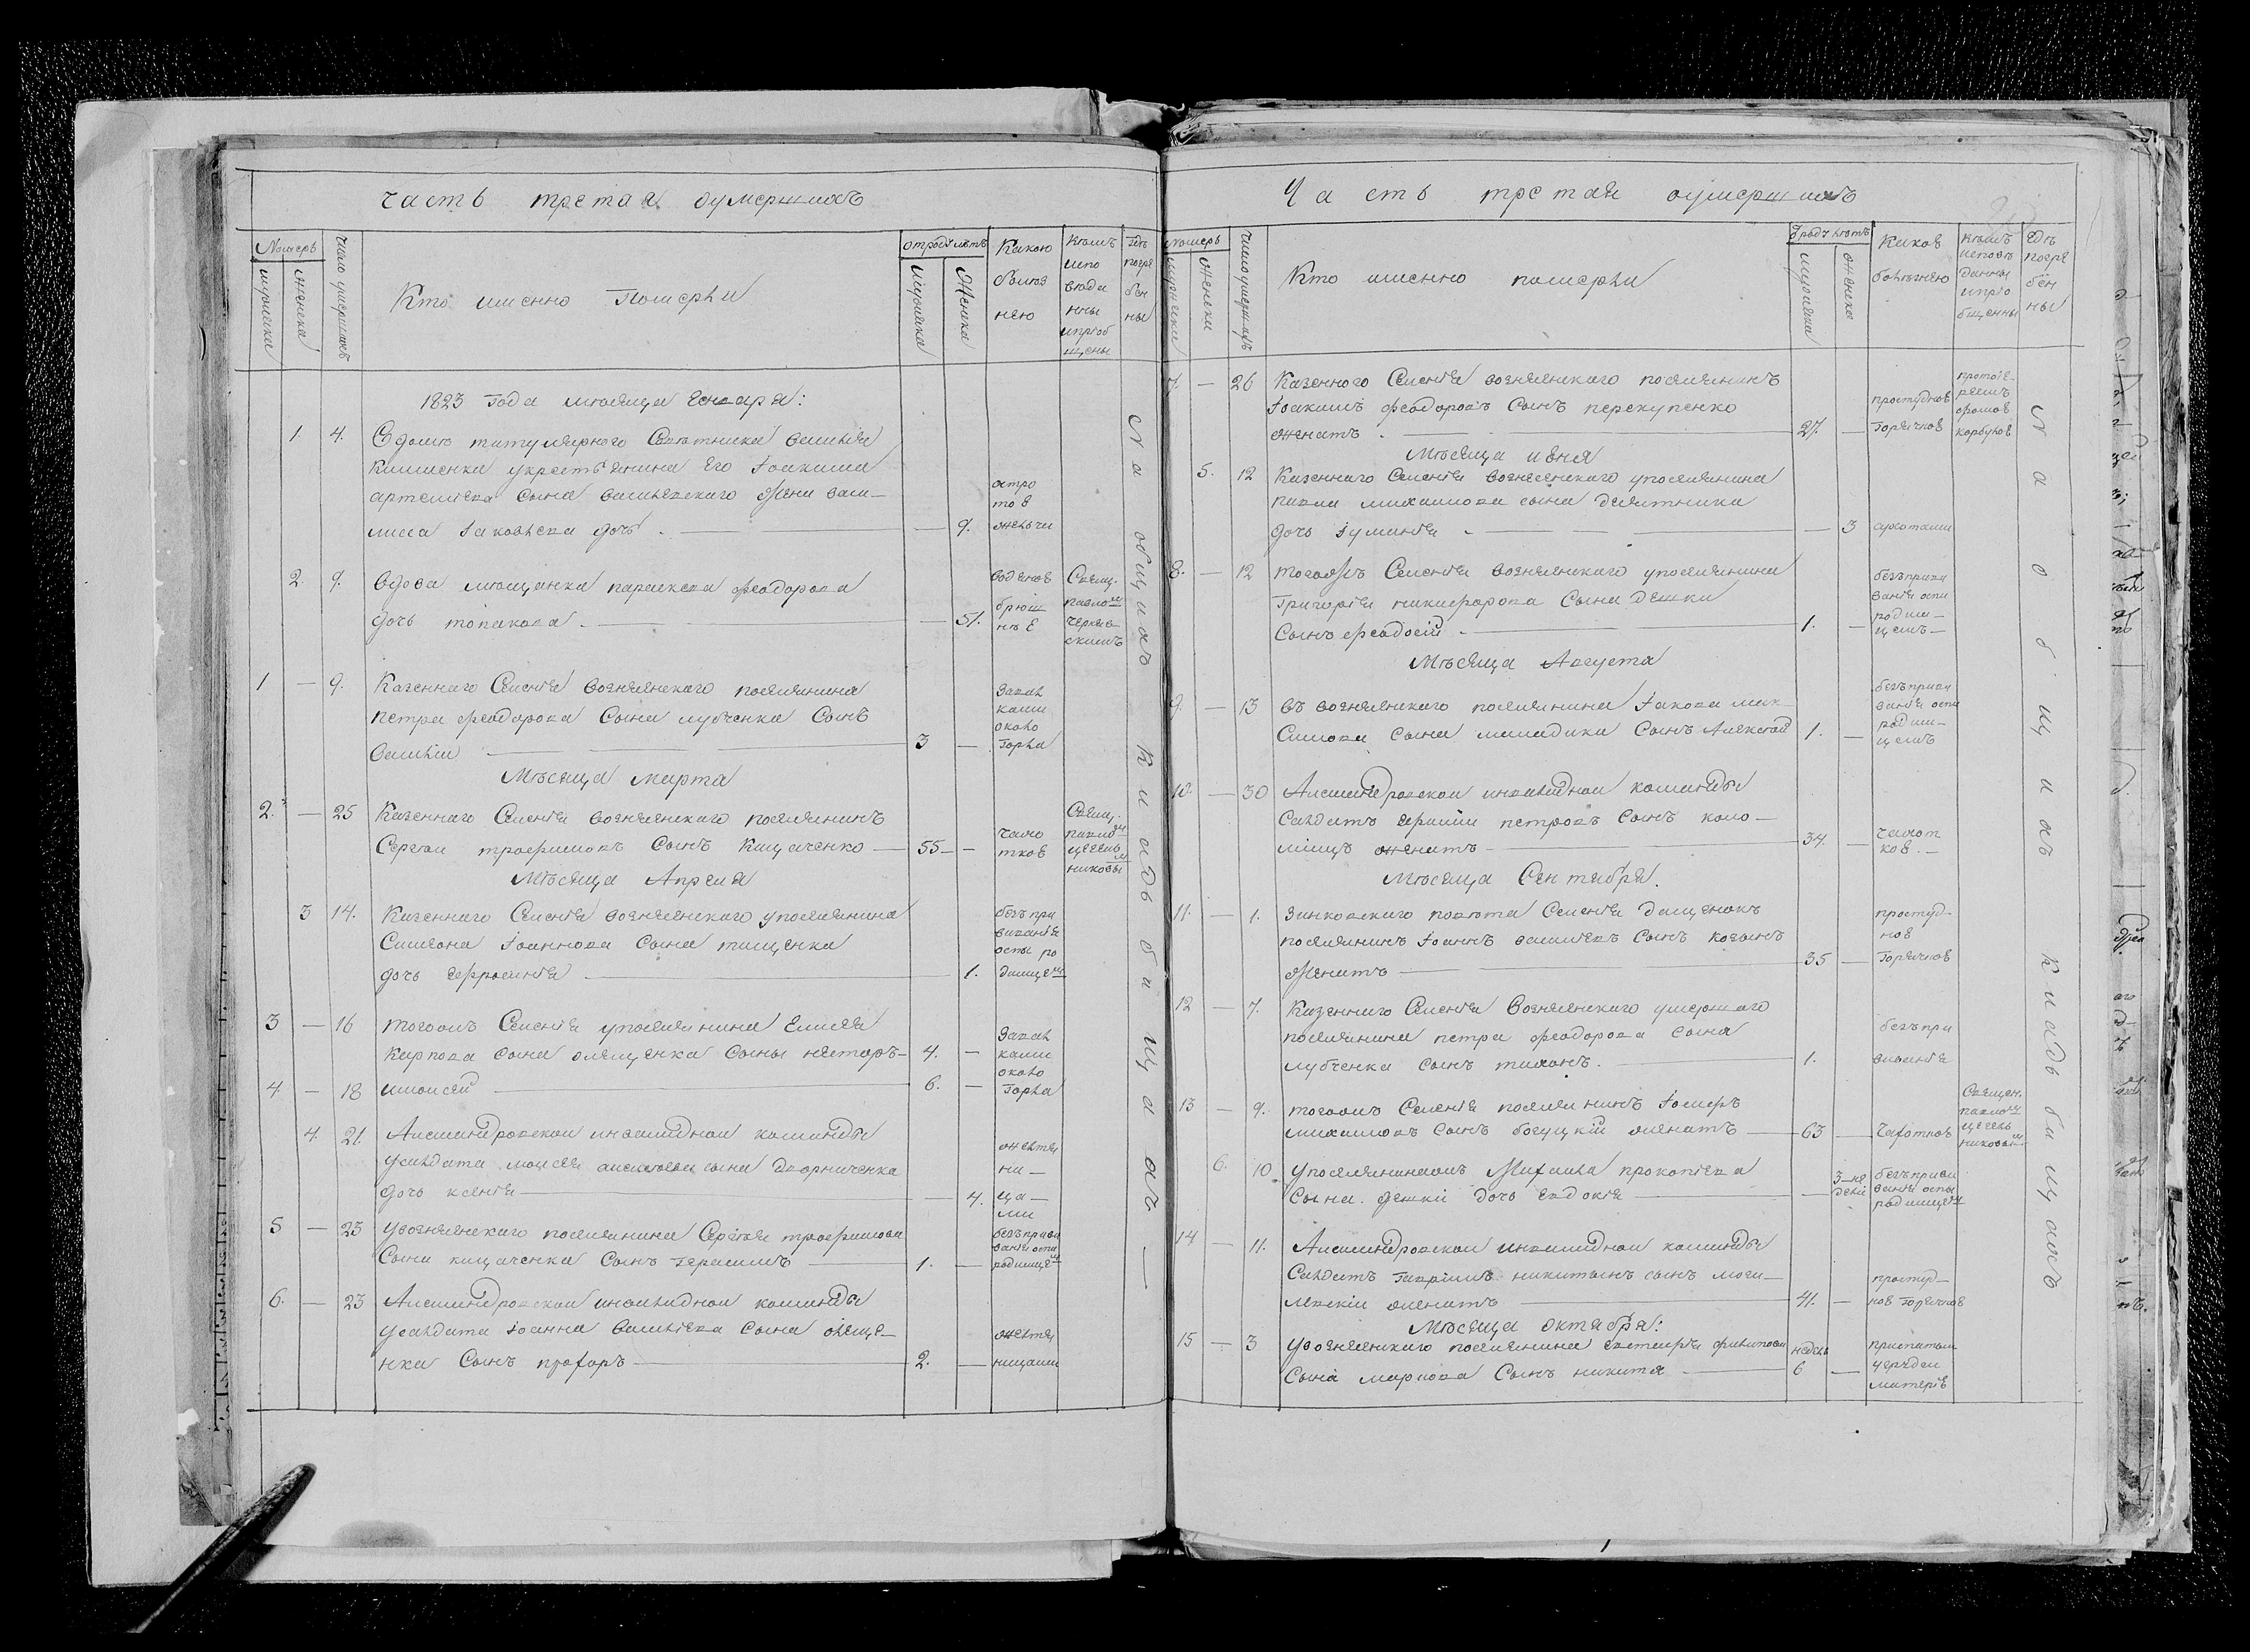 часть третая оумершихъ
Номеръ
мужеска
женска
число умершихъ
Кто именно Померли
отроду летъ
мужеска
Женска
Какою
болѣз
нею
Кѣмъ
испо
веда
нны
ипрiоб
щены
Гдѣ
погре
бен
ны
1823 Года мѣсяца Генваря:
1. 4. Вдомѣ титулярного Советника василия
укрестьянина его Iоакима
артемiева сына василевского жены васи-
лиса Iаковлева дочь. — 9.
остро
тоѣ
жельчи
2. 9. Вдова мещанка параскева феодорова
дочь топчкова. — 51.
водяною
брюш
ною
Свящ.
павломъ
черняв-
скимъ
1 — 9. Казеннаго Селенiя вознесенскаго поселянина
петра феодорова Сына лубченка Сынъ
василiй — 3 —
завал
ками
около
Горла
Мѣсяца Марта
2. — 25 Казеннаго Селенiя вознесенскаго поселянинъ
Сергей трофимовъ Сынъ Кищенко — 55 —
чахо
ткою
Свящ.
павломъ
Мѣсяца Апреля
3 14. Казеннаго Селенiя вознесенскаго упоселянина
Симеона Iоаннова Сына тищенка
дочь евфросинiя — 1.
безъ при
виванiя
оспы ро
димцемъ
3 — 16 тогожъ Селенiя упоселянина Елисея
Карпова сына олещенка Сыны несторъ — 4. —
4. — 18 имоисей — 6. —
завал
ками
около
Горла
4. 21. Александровской инвалидной команды
усалдата моисея алексеева сына дворниченка
дочь ксенiя — 4.
желтя
ни-
ца-
ми
5 — 23 увознесенскаго поселянина Сергея трофимова
Сына кищенка Сынъ Герасимъ — 1. —
безъ приви
ванiя оспы
родимцемъ
6. — 23 Александровской инвалидной команды
усалдата Iоанна Василiева Сына олеще-
нка Сынъ прохоръ — 2. —
желтя
ницами
На общихъ кладбищахъ —
Часть третая оумершихъ
Номеръ
мужески
женски
число умершихъ
Кто именно померли
Ѿроду летъ
мужеска
женска
Какою
болѣзнею
Кѣмъ
исповѣ
данны
ипрiо
бщенны
Гдѣ
погре
бен
ны
7. — 26 Казенного Селенiя вознесенскаго поселянинъ
Iоакимъ феодоровъ Сынъ перекупенко
женатъ. — 27. —
простудною
Горячкою
протоiе-
реемъ
фомою
карбуною
Мѣсяца июня
5. 12 Казеннаго Селенiя вознесенскаго упоселянина
павла михаилова сына девятника
дочь Iулианiя — 3
сухотами
8. — 12 тогожъ Селенiя вознесенскаго упоселянина
Григорiя никифорова Сына Дешки
Сынъ феодосiй — 1. —
безъ приви
ванiя оспы
родим-
цемъ —
Мѣсяца Августа
9. — 13 въ вознесенскаго поселянина Iакова мак-
симова Сына мамадика Сынъ Алексѣй 1. —
безъ приви
ванiя оспы
родим-
цемъ
10. — 30 Александровской инвалидной команды
Салдатъ ираклiй петровъ Сынъ коло-
мiецъ женатъ — 34. —
чахот
кою. —
Мѣсяца Сентября.
11. — 1. зинковского повѣта Селенiя
поселянинъ Iоаннъ василiевъ Сынъ козынъ
Женатъ — 35 —
простуд-
ною
Горячкою
12 — 7. Казеннаго Селенiя Вознесенскаго умершаго
поселянина петра феодорова Сына
лубченка Сынъ тихонъ. — 1.
безъ при
виванiя
13 — 9. тогожъ Селенiя поселянинъ
михаиловъ Сынъ богуцкiй женатъ — 63 —
Чахоткою
Священ.
павломъ
6. 10. упоселянинажъ Михаила прокопiева
Сына. дешки дочь евдокiя — 3-хъ дней
безъ приви
ванiя оспы
родимцемъ
14 — 11. Александровской инвалидной команды
Салдатъ Гаврiилъ никитинъ сынъ моги-
левскiй женатъ — 41. —
простуд-
ною Горячкою
Мѣсяца октября:
15 — 3 увознесенскаго поселянина филипова
Сына маркова Сынъ никита — недель 6 —
матерiею
На общихъ кладбищахъ